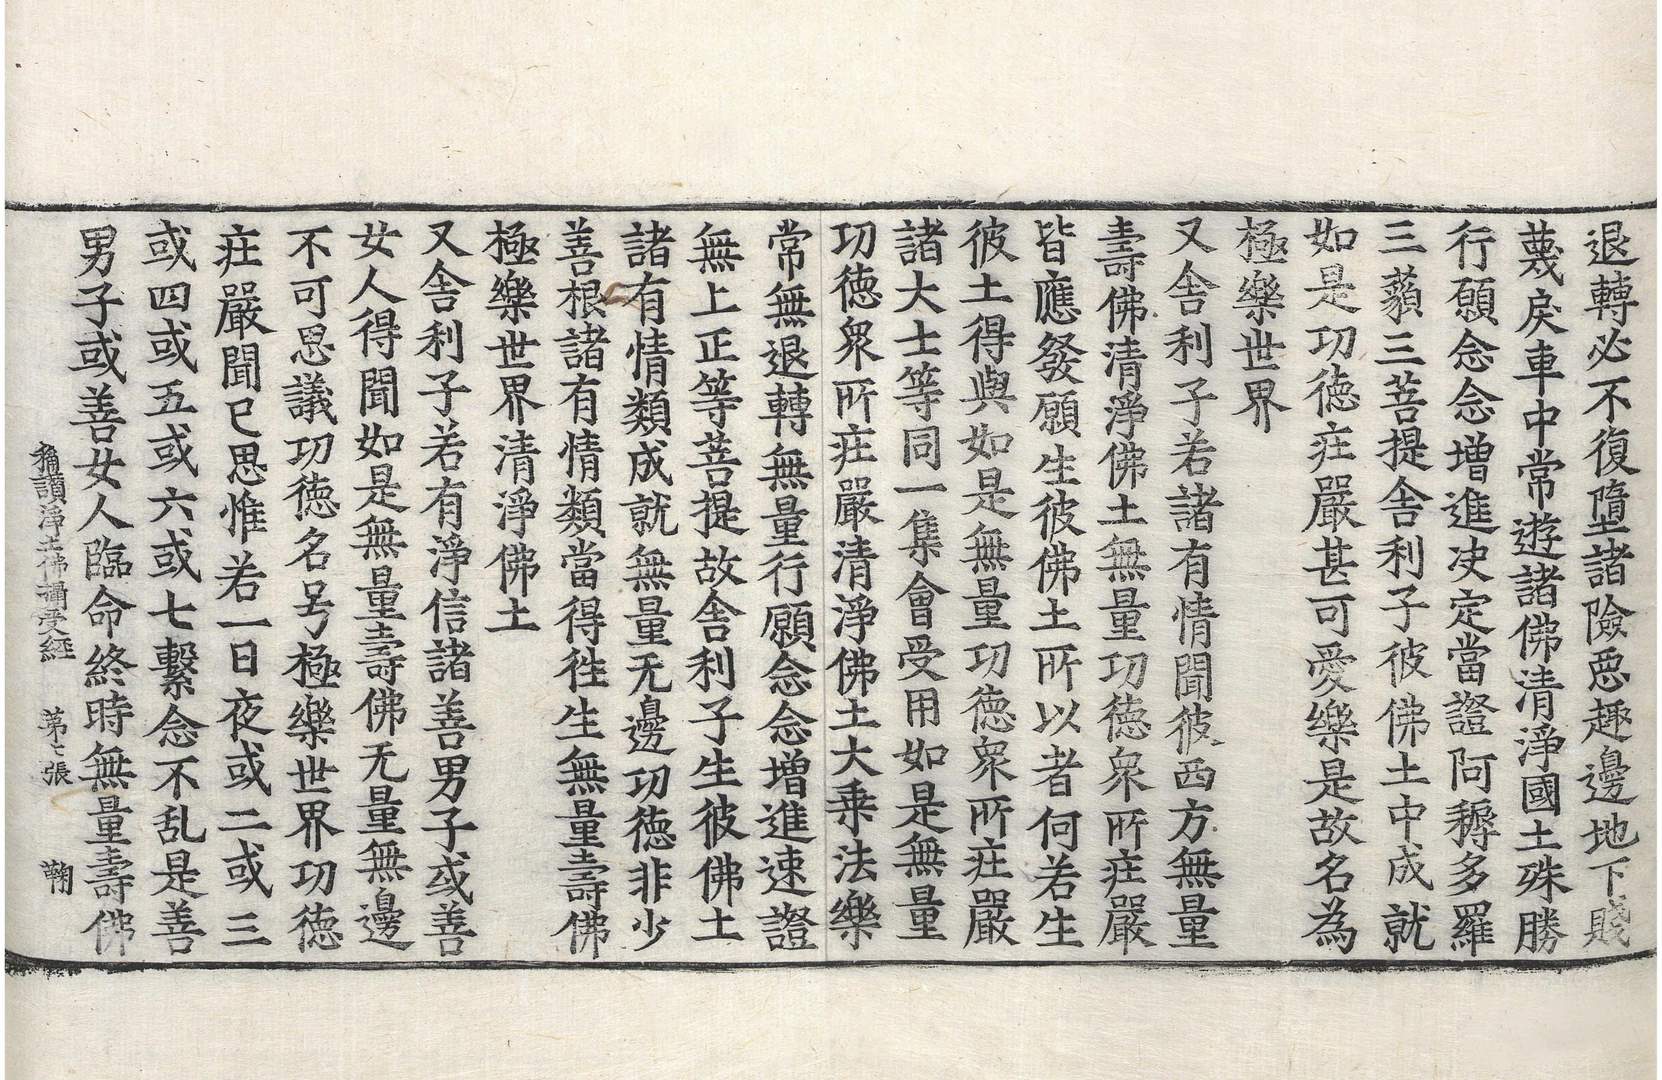 退轉必不復墮諸險惡趣邊地下賤
蔑戾車中常遊諸佛清淨國土殊勝
行願念念增進决定當證阿耨多羅
三藐三菩提舍利子彼佛土中成就
如是功德莊嚴甚可愛樂是故名為
極樂世界
又舍利子若諸有情聞彼西方無量
壽佛清淨佛土無量功德衆所莊嚴
皆應發願生彼佛土所以者何若生
彼土得與如是無量功德衆所莊嚴
諸大士等同一集會受用如是無量
功德衆所莊嚴清淨佛土大乘法樂
常無退轉無量行願念念增進速證
無上正等菩提故舍利子生彼佛土
諸有情類成就無量无邊功德非少
善根諸有情類當得徃生無量壽佛
極樂世界清淨佛土
又舍利子若有淨信諸善男子或善
女人得聞如是無量壽佛无量無邊
不可思議功德名号極樂世界功德
莊嚴聞已思惟若一日夜或二或三
或四或五或六或七繫念不乱是善
男子或善女人臨命終時無量壽佛
稱讃淨土佛攝受經 第七張 鞠